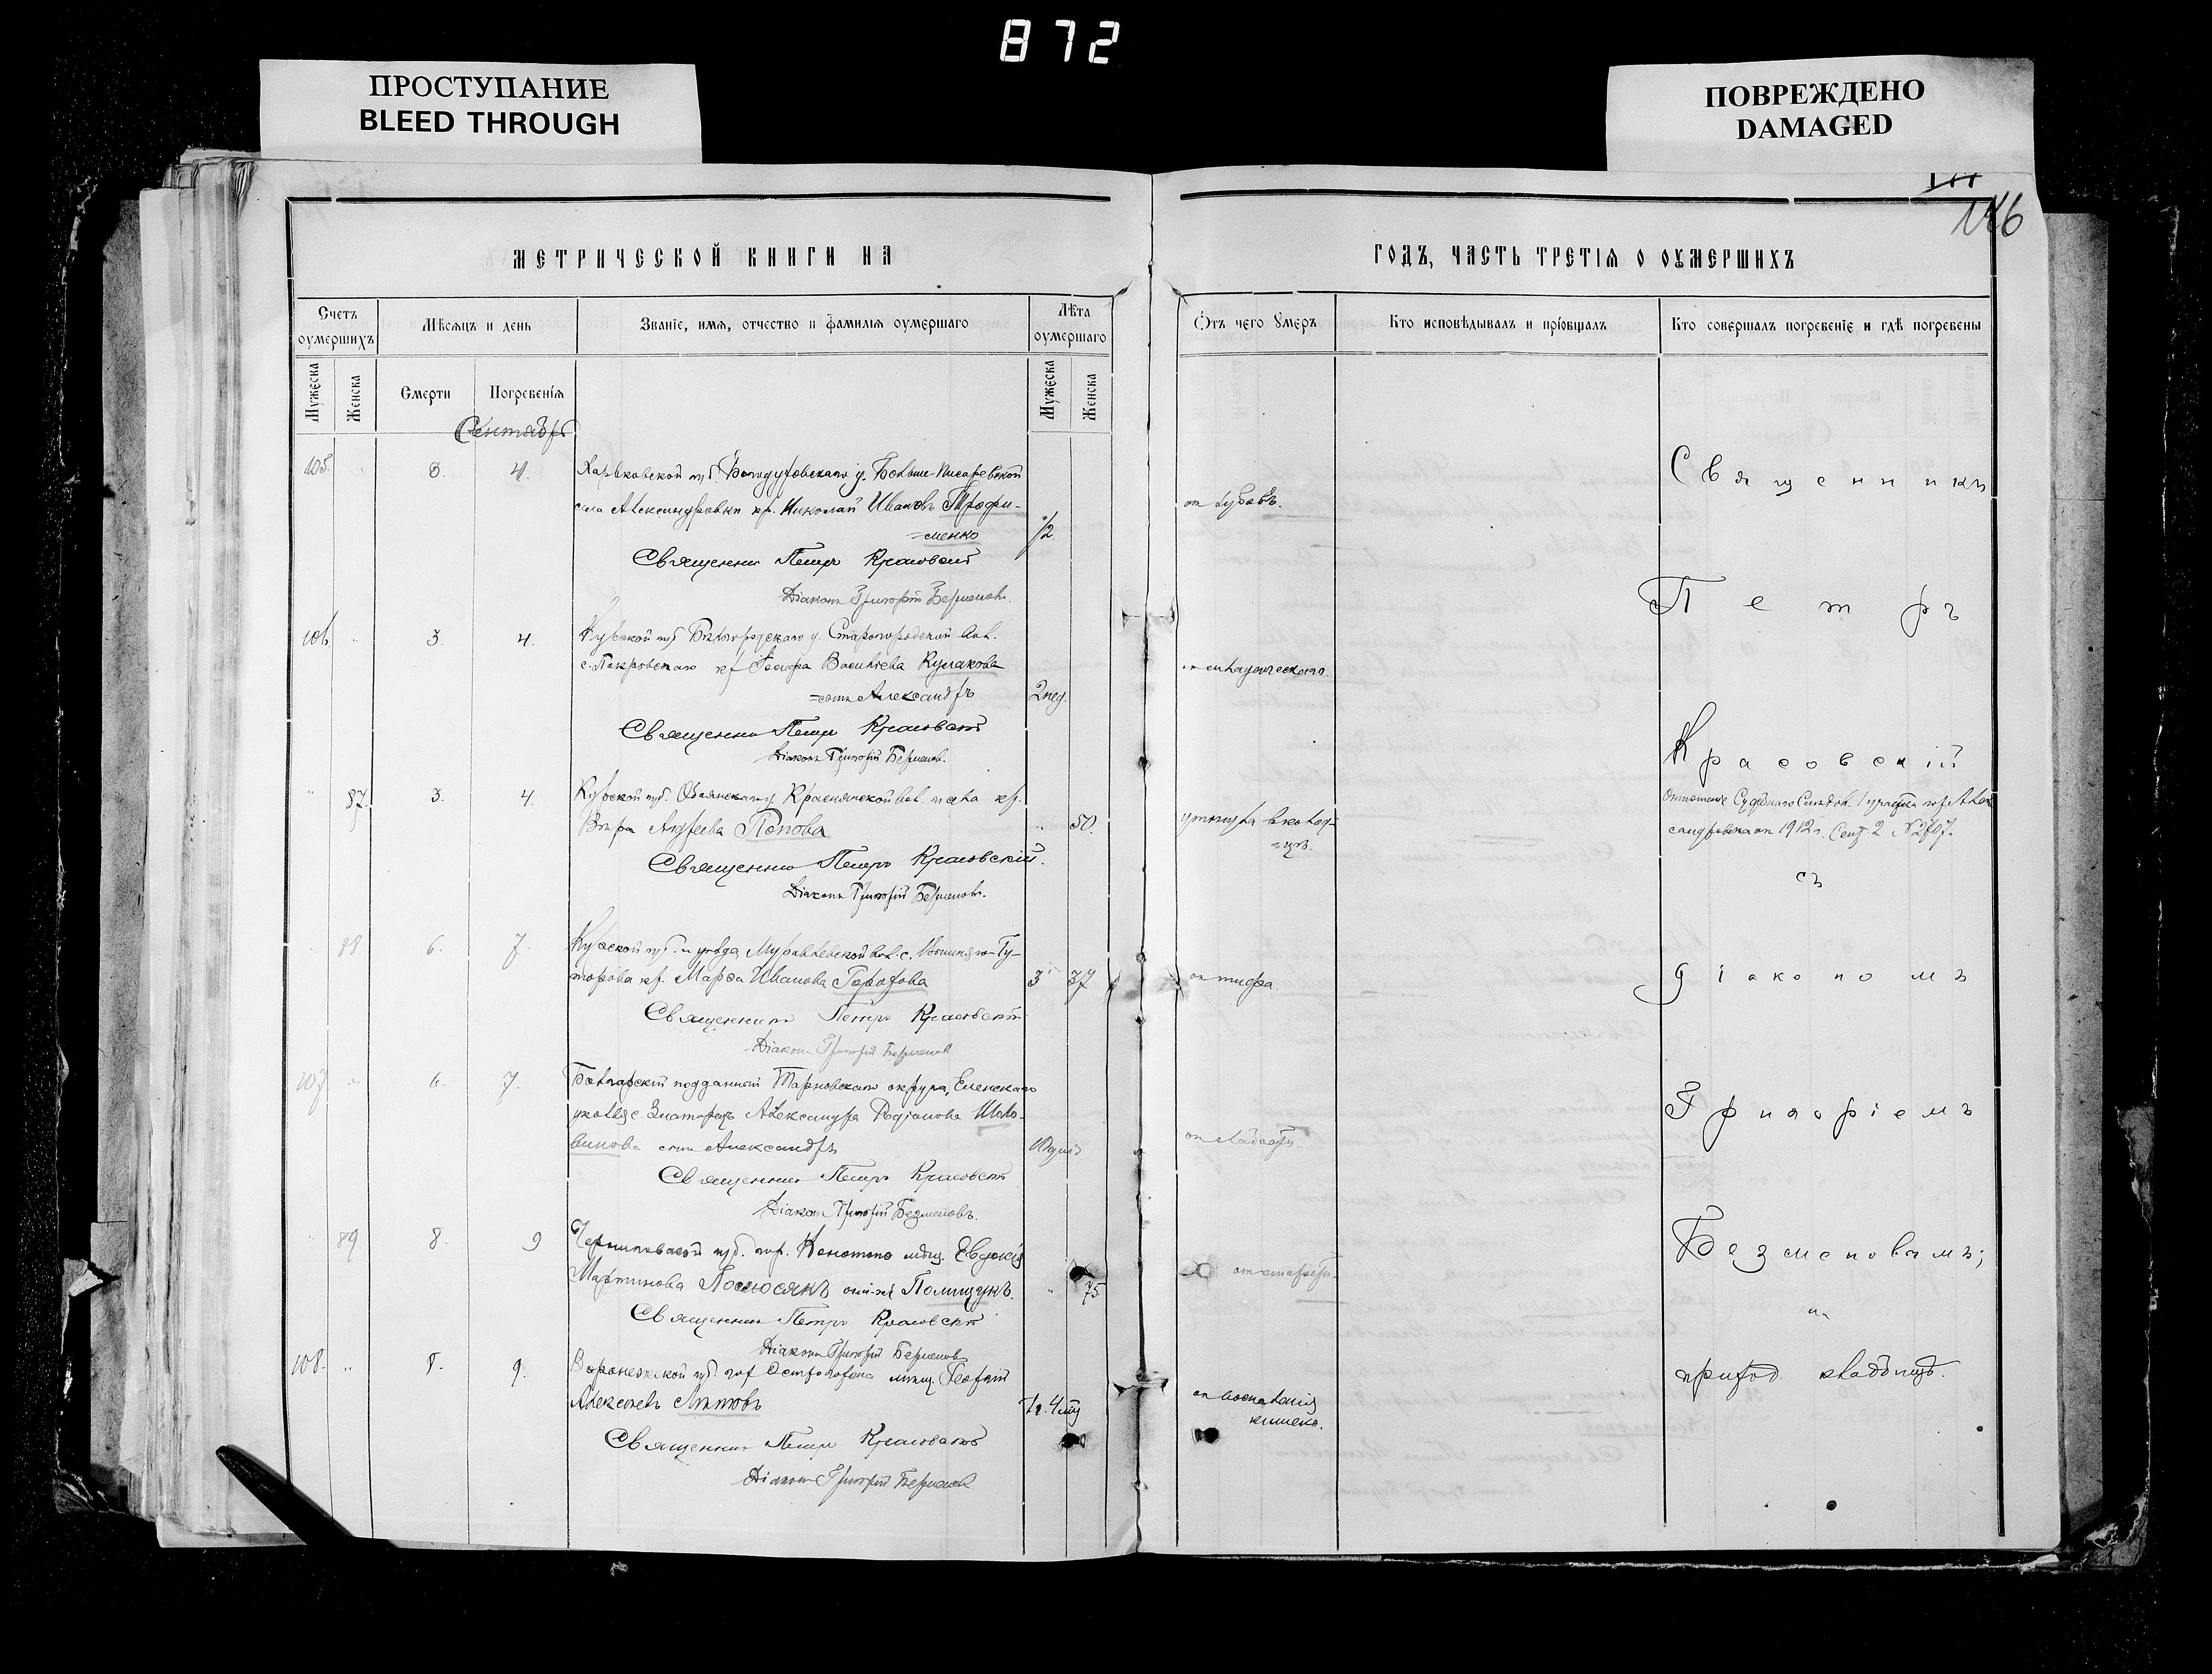 872
ПРОСТУПАНИЕ
BLEED THROUGH
ПОВРЕЖДЕНО
DAMAGED
146
МЕТРИЧЕСКОЙ КНИГИ НА
ГОДЪ, ЧАСТЬ ТРЕТІЯ О ОУМЕРШИХЪ
Счетъ оумершихъ
Мѣсяцъ и день
Званіе, имя, отчество и фамилія оумершаго
Лѣта оумершаго
Отъ чего умеръ
Кто исповѣдывалъ и пріобщалъ
Кто совершалъ погребеніе и гдѣ погребены
Мужеска
Женска
Смерти
Погребенія
Мужеска
Женска
Сентябрь
105. " 3. 4. Харьковской губ. Богодуховскаго у. Больше-Писаревской
села Александровки кр. Николай Ивановъ Трофи-
=менко
1/2
от зубовъ.
Священникъ Петръ Красовскій
Діаконъ Григорій Безменовъ.
106. " 3. 4. Курской губ Бѣлгородскаго у. Старогородской вол.
с. Покровскаго кр Іосифа Васильева Кулакова
=сынъ Александръ 2 нед.
Священникъ Петръ Красовскій
Діаконъ Григорій Безменов.
" 87. 3. 4. Курской губ. Обоянскаго у. кр.
Вѣра Андреева Попова " 50.
утонула в колод-
=цѣ.
Священникъ Петръ Красовскій.
Діаконъ Григорій Безменовъ.
" 88 6. 7. Курской губ. и уѣзда Муравлевской вол. с.
кр. Марѳа Иванова 37
от тифа.
Священникъ Петръ Красовскій
Діаконъ Григорій Безменов
107. " 6. 7. Болгарскій подданный Тарновскаго округа, Еленскаго
с. Златарецъ Александра Родіонова
сынъ Александръ
от слабости
Священникъ Петръ Красовскій
Діаконъ Григорій Безменовъ.
" 89 8. 9 Черниговской губ. гор. Конотопа мѣщ. Евдокія
Мартинова она-же Полищукъ. " 75.
от старости.
Священникъ Петръ Красовскій
Діаконъ Григорій Безменовъ
108. " 8. 9. Воронежской губ. гор Острогожска мѣщ. Георгій
Алексѣевъ
1 г. 4 мѣс
от воспаленія
кишекъ.
Священникъ Петръ Красовскій
Діаконъ Григорій Безменов
Священникъ
Петръ
Красовскій
Отношеніе Судебнаго Слѣдов. 1 участка гор. Алек
сандровска от 1912 г. Сент. 2 №2707.
съ
діакономъ
Григоріемъ
Безменовымъ;
на
приход. кладбищѣ.